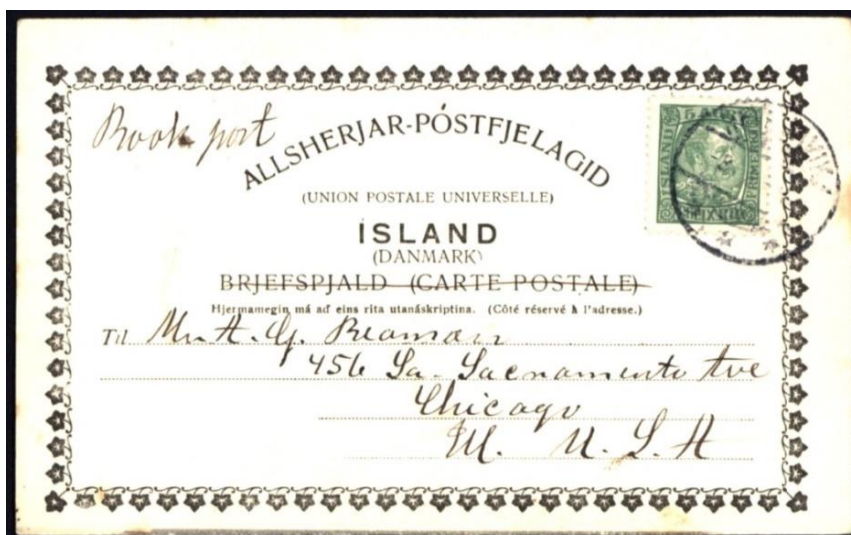 Book post
ALLSHERJAR-PÓSTFJELAGID
(UNION POSTALE UNIVERSELLE)
ÍSLAND
(DANMARK)
BRJEFSPJALD (CARTE POSTALE)
Hjermamegin má að eins rita utanáskriptina. (Côté réservé à l'adresse.)
Til Mr. A. G. Beaman
456 So. Sacramento Ave
Chicago
Ill. U.S.A
5 AUR
ISLAND
FRIMERKI